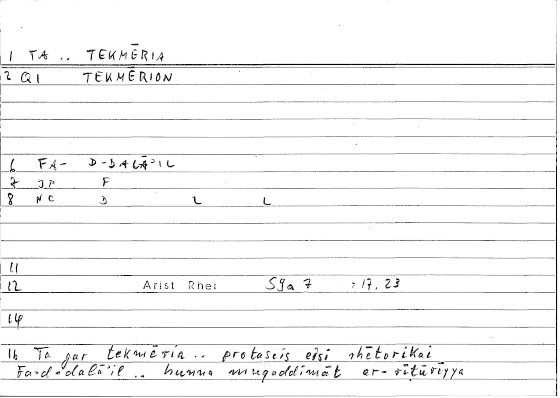 1 TA .. TEKMĒRIA
2 QI TEKMĒRION
6 FA- D-DALĀʾIL
7 JP F
8 NC D L L
11
12 Arist Rhet 59a7 :17,23
14
16 Ta gar tekmēria .. protaseis eisi rhētorikai
Fa-d-dalāʾil .. hunna muqaddimāt ar-rīṭūrīyya